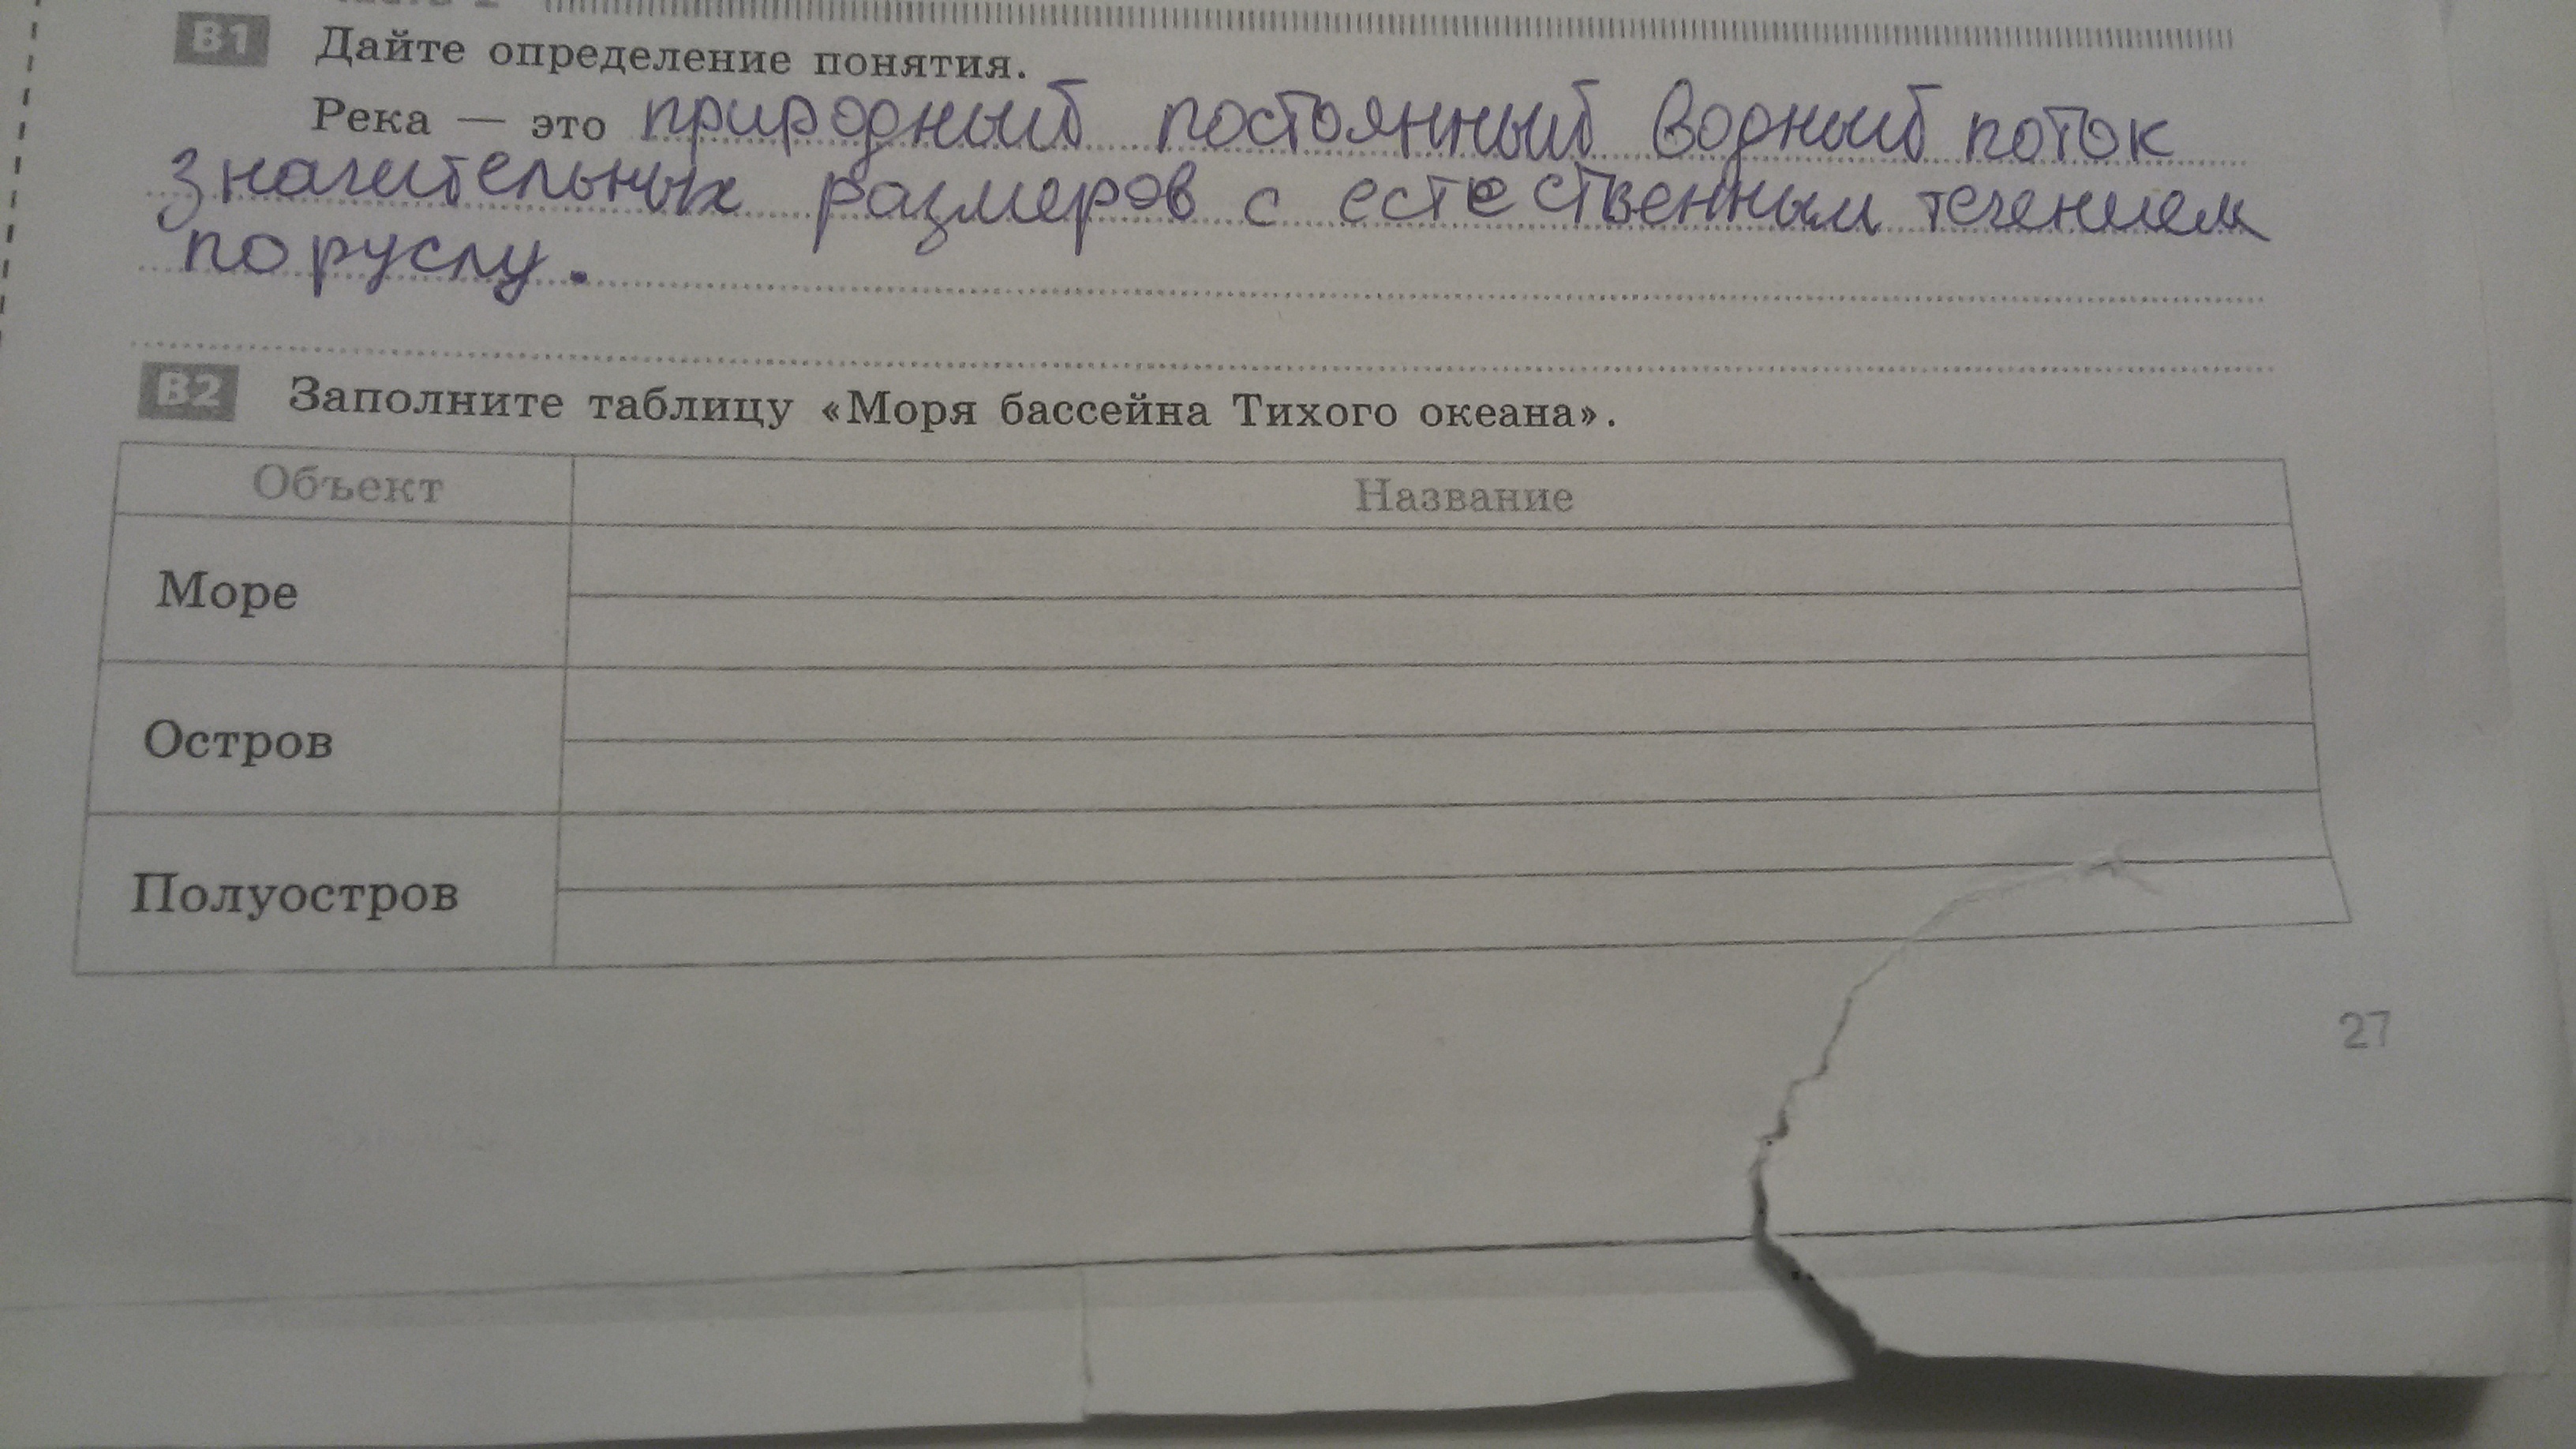 В1 Дайте определение понятия.
Река — это природный постоянный водный поток
значительных размеров с естественным течением
по руслу.
В2 Заполните таблицу «Моря бассейна Тихого океана».
Объект Название
Море
Остров
Полуостров
27